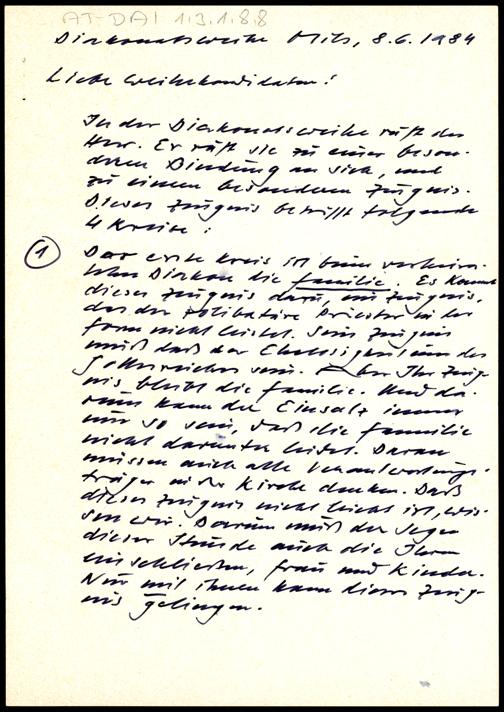 AT-DAI 1.3.1.8.8
Diakonatsweihe Mils, 8.6.1984
Liebe Weihekandidaten!
In der Diakonatsweihe ruft der
Herr. Er ruft sie zu einer beson-
deren Bindung an sich, und
zu einem besonderen Zeugnis.
Dieses Zeugnis betrifft folgende
4 Kreise:
1 Der erste Kreis ist beim verheira-
teten Diakon die Familie. Es kommt
dieses Zeugnis dazu, ein Zeugnis,
das der zölibatäre Priester in der
Form nicht leistet. Sein Zeugnis
muß das der Ehelosigkeit um des
Gottesreiches sein. Aber Ihr Zeug-
nis bleibt die Familie. Und da-
rum kann der Einsatz immer
nur so sein, daß die Familie
nicht darunter leidet. Daran
müssen auch alle Verantwortungs-
träger in der Kirche denken. Daß
dieses Zeugnis nicht leicht ist, wis-
sen wir. Darum muß der Segen
dieser Stunde auch die Ihren
einschließen, Frau und Kinder.
Nur mit ihnen kann dieses Zeug-
nis gelingen.